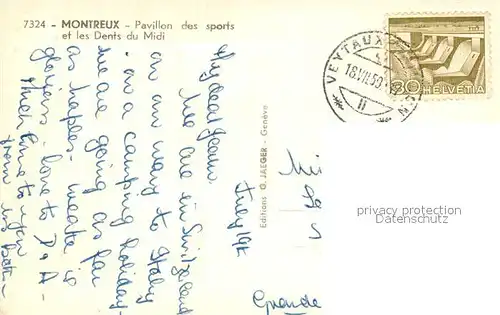 7324 - MONTREUX - Pavillon des sports
et les Dents du Midi
VEYTAUX
18.VII.50
II
30 HELVETIA
Editions O. JAEGER - Genève
July 19th
My dear Jean,
We are in Switzerland
on our way to Italy
on a camping holiday.
We are going as far
as Naples. Weather is
glorious. Love to D & A.
Much love to you
from
privacy protection
ansichtskartenhandel.de
Grande